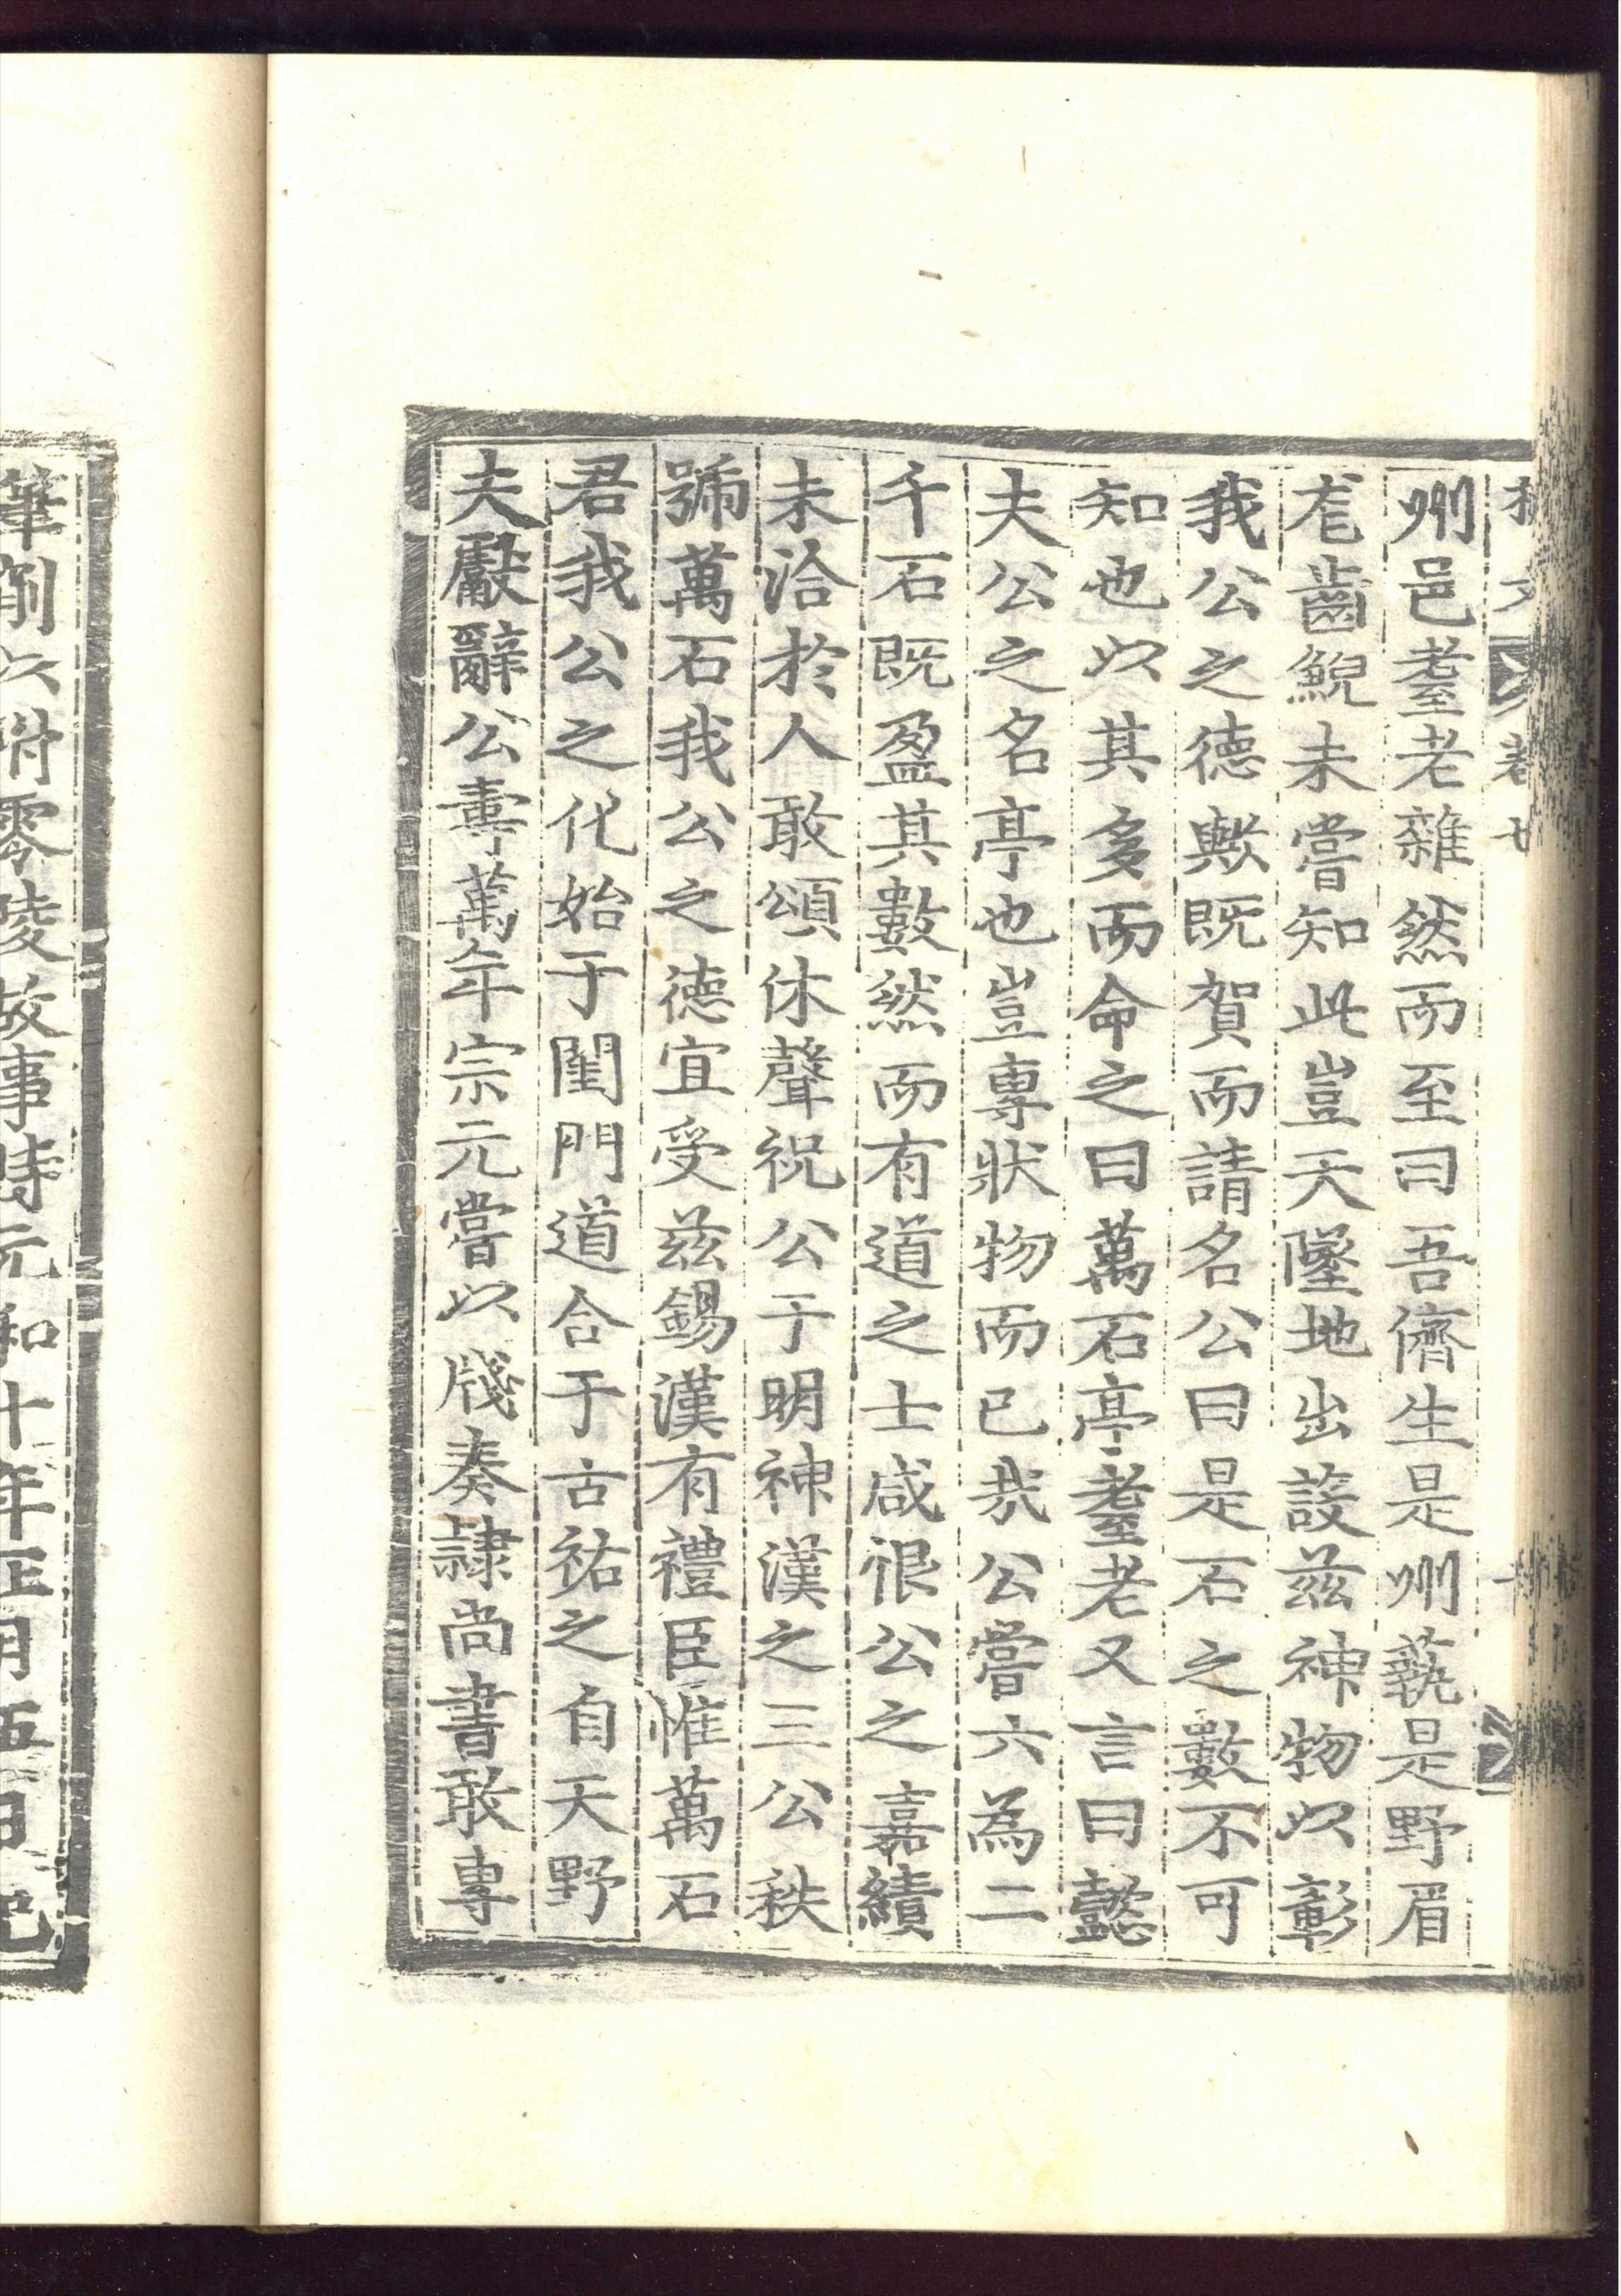 州邑耋老雜然而至曰吾儕生是州蓺是野眉
厖齒鯢未嘗知此豈天墜地出設茲神物以彰
我公之德歟既賀而請名公曰是石之數不可
知也以其多而命之曰萬石亭耋老又言曰懿
夫公之名亭也豈專狀物而已哉公嘗六為二
千石既盈其數然而有道之士咸恨公之嘉績
未洽於人敢頌休聲祝公于明神漢之三公秩
號萬石我公之德宜受茲錫漢有禮臣惟萬石
君我公之化始于閨門道合于古祐之自天野
夫獻辭公壽萬年宗元嘗以牋奏隷尚書敢專
筆削以附零陵故事時元和十年正月五日記